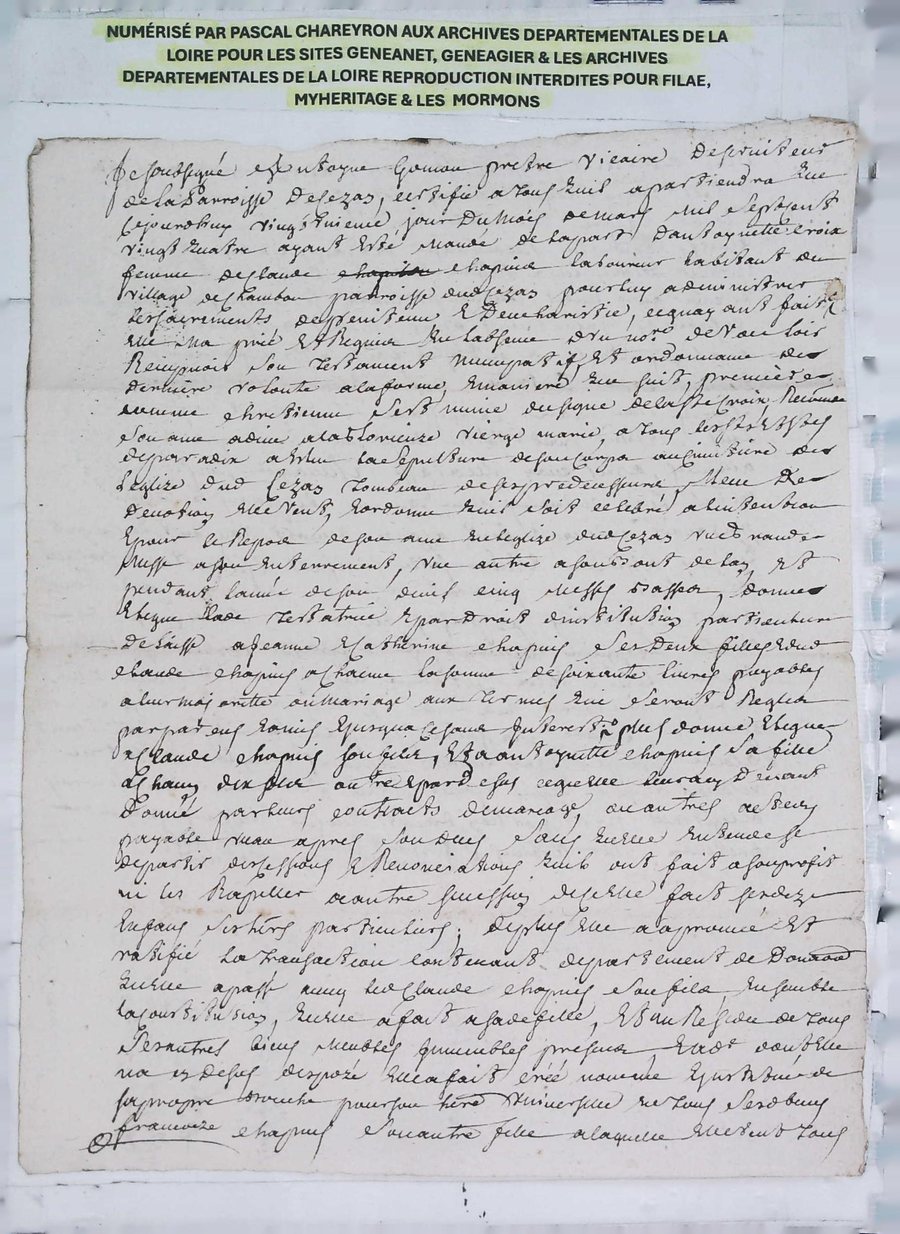 NUMÉRISÉ PAR PASCAL CHAREYRON AUX ARCHIVES DEPARTEMENTALES DE LA
LOIRE POUR LES SITES GENEANET, GENEAGIER & LES ARCHIVES
DEPARTEMENTALES DE LA LOIRE REPRODUCTION INTERDITES POUR FILAE,
MYHERITAGE & LES MORMONS
Je soubsigné pretre vicaire
de la Parroisse de Cezas, certifie a tous quil apartiendra que
cejourdhuy vingt jour du Mois de mars Mil Septcent
vingt quatre ayant esté Mandé de la part Dantoynette croix
femme de Claude chapuis laboureur habitant du
village de Chambon parroisse dud Cezas pour luy administrer
les sacrements de penitence & Deucharistie, ce quayant fait
elle ma prié Et Requis En labsence dun nore de vouloir
Recepvoir Son Testament Nuncupatif, Et ordonnance de
derniere volonté a la forme, & maniere que suit, premiere
comme chretienne Sest munie du signe de la Ste Croix, Recommandé
Son ame a dieu a la Glorieuze vierge marie, a tous les Sts Et Stes
de paradix a Eslu la Sepulture de son Corps au Cimitiere de
Leglize dud Cezas Tombeau de ses predecesseurs, Meue De
Devotion Elle veut, & ordonne quil soit celebré a lintention
& pour le Repos de son ame En leglize dud Cezas une Grande
Messe a son Enterrement, une autre a son bout de lan, Et
pendant lannée de son deuil cinq messes basses, donne
& legue Lade Testatrice & par Droit dinstitution particuliere
Delaisse a Jeanne & Catherine chapuis Ses Deux filles & dud
Claude chapuis a Chacune la somme de soixante livres payables
a leur majorité ou Mariage aux Termes qui Seront Reglés
par parens & amis & jusqua ce sans Interest plus donne & legue
a Claude chapuis son fils, Et a antoynette chapuis Sa fille
a Chacun dix sols outre & pard esus ce quelle leur a cy Devant
Donné par leurs contracts de mariage, ou autres actes
payable un an apres Son deces Sans quelle Entende se
departir des cessions & Renonciations quils ont fait a son profit
ni les Rapeller a autre succession de ce elle fait Sesdits
Enfans Ses hers particuliers; de plus Elle a aprouvé Et
ratifié la Transaction Contenant departement de
quelle a passé avecq led Claude chapuis Son fils Ensemble
la Constitution, quelle a fait a Sade fille, Et au Residu de tous
Ses autres biens Meubles & immeubles presens, dont Elle
na cy Desus dispozé Elle a fait créé nommé & institué de
sa propre bouche pour son here Universelle de tous Sesd biens
francoize chapuis Son autre fille a laquelle Elle veut tous